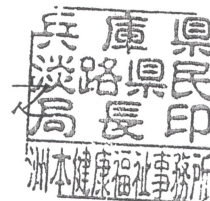 兵庫県
淡路県民
局長印
洲本健康福祉事務所